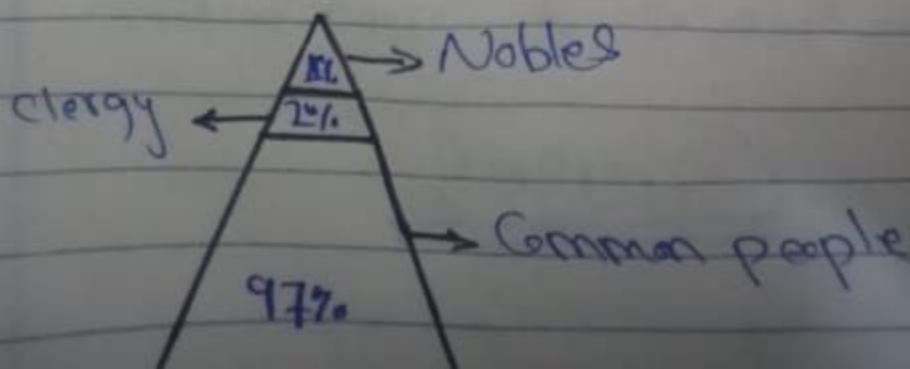 Nobles
Clergy
2%
Common people
97%